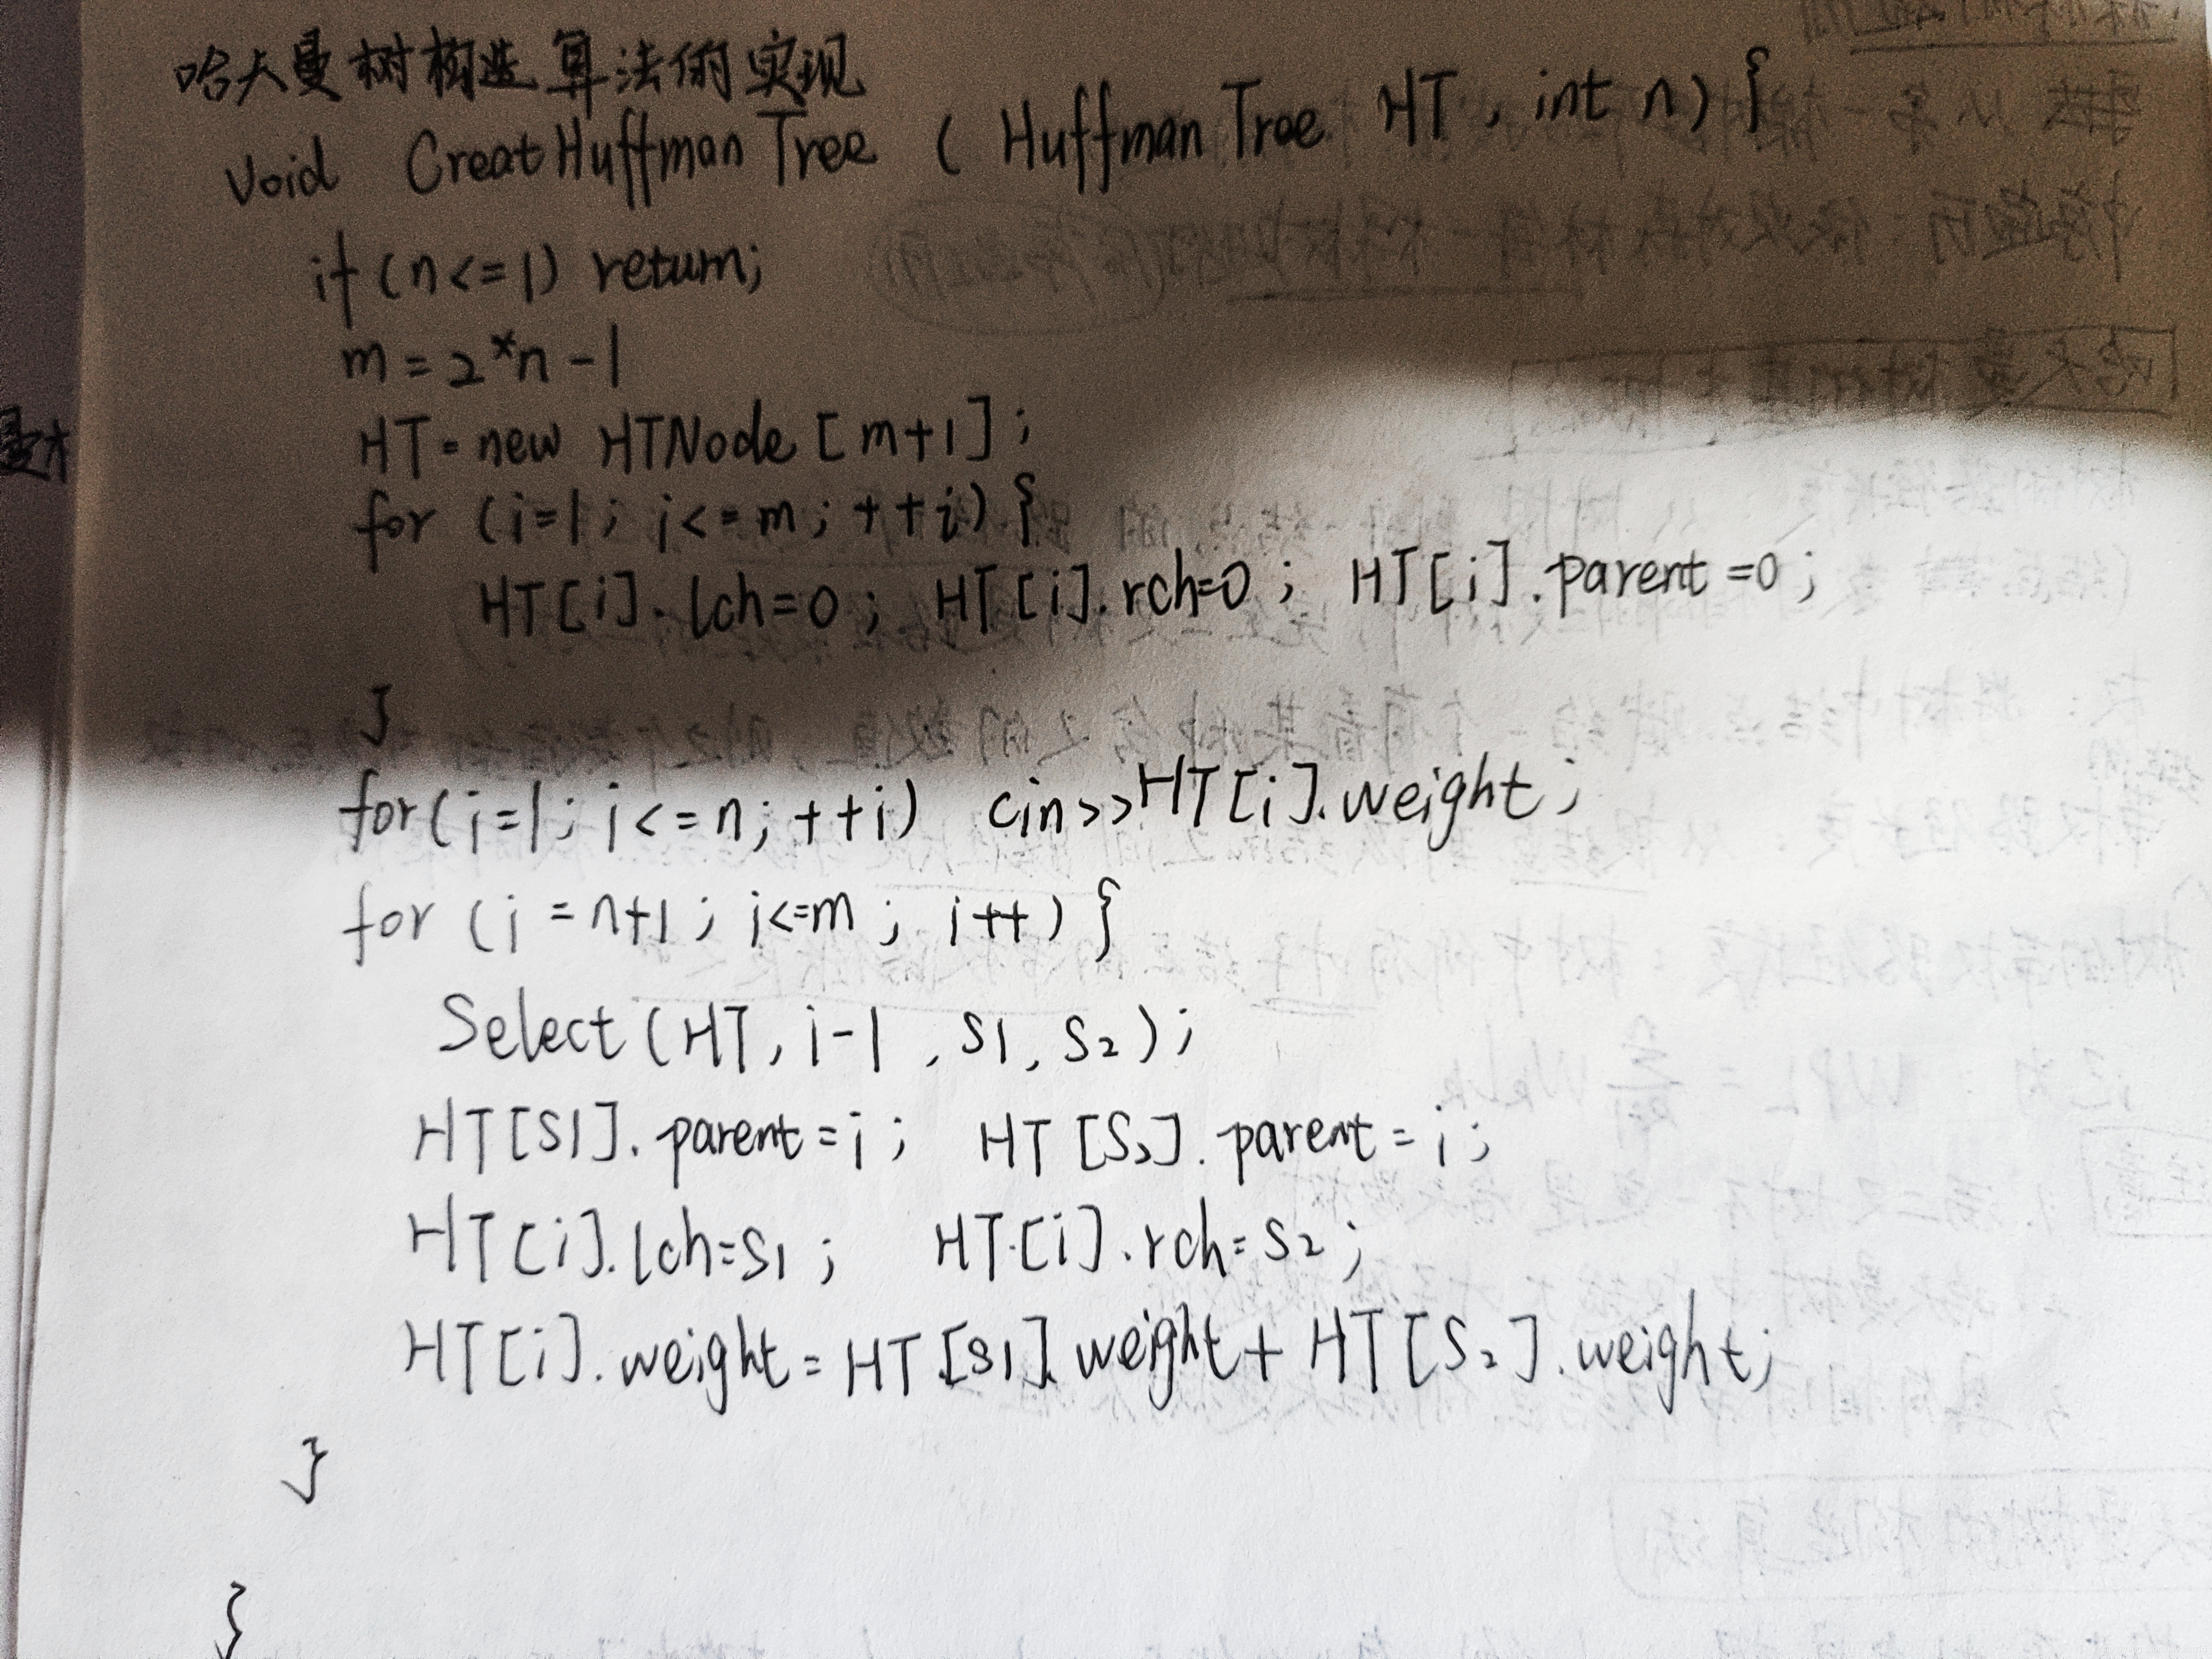 哈夫曼树构造算法的实现
void CreatHuffmanTree ( HuffmanTree HT, int n) {
if (n<=1) return;
m = 2*n -1
HT = new HTNode [m+1] ;
for (i=1; i<=m; ++i) {
HT[i].lch=0; HT[i].rch=0; HT[i].parent=0;
}
for(i=1; i<=n; ++i) cin>>HT[i].weight;
for (i=n+1; i<=m; i++) {
Select (HT, i-1, S1, S2);
HT[S1].parent=i; HT[S2].parent=i;
HT[i].lch=S1; HT[i].rch=S2;
HT[i].weight=HT[S1].weight+HT[S2].weight;
}
}